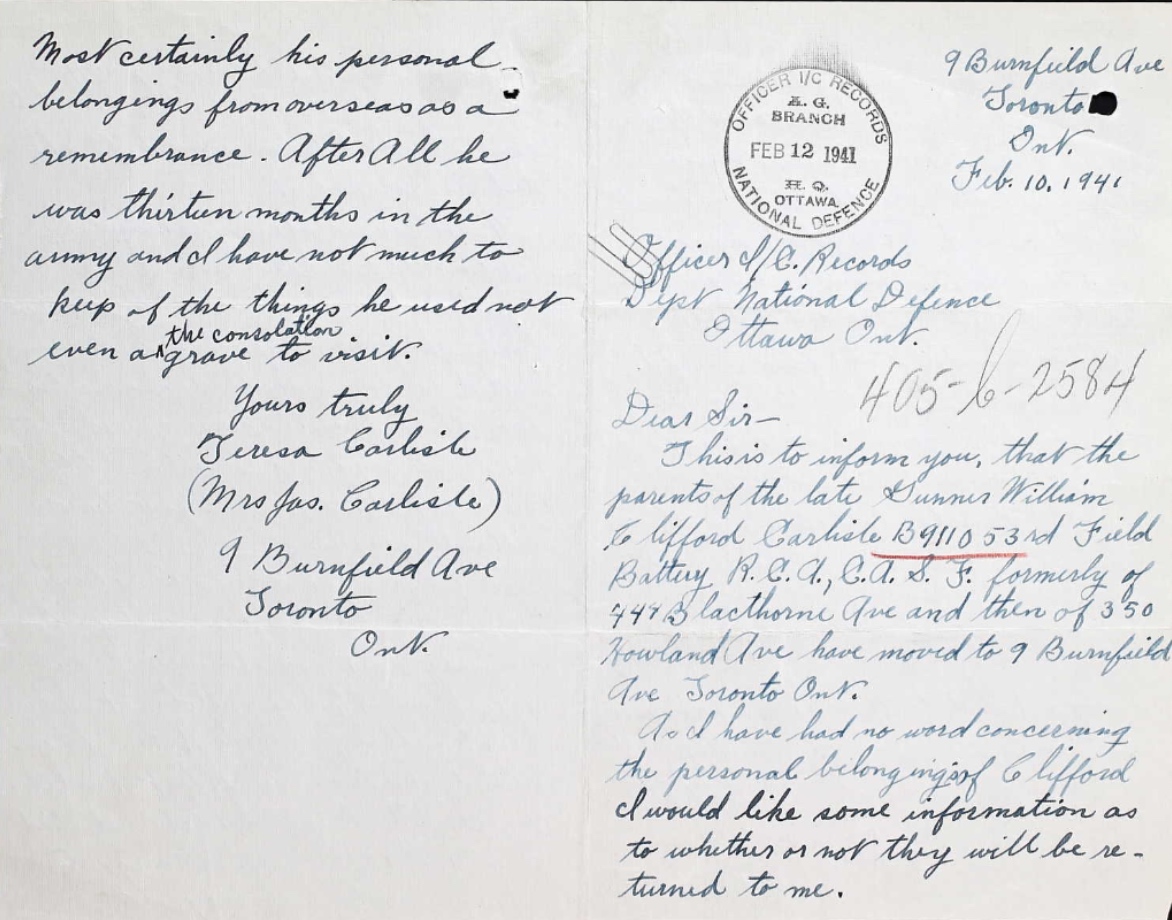 9 Burnfield Ave
Toronto
Ont.
Feb. 10. 1941
OFFICER I/C RECORDS
A. G.
BRANCH
FEB 12 1941
H. Q.
OTTAWA.
NATIONAL DEFENCE
Officer I/C. Records
Dept National Defence
Ottawa Ont.
405-6-2584
Dear Sir—
This is to inform you, that the
parents of the late Gunner William
Clifford Carlisle B9110 53rd Field
Battery R.C.A., C.A.S.F. formerly of
444 Blacthorne Ave and then of 350
Howland Ave have moved to 9 Burnfield
Ave Toronto Ont.
As I have had no word concerning
the personal belongings of Clifford
I would like some information as
to whether or not they will be re-
turned to me.
Most certainly his personal
belongings from overseas as a
remembrance. After All he
was thirteen months in the
army and I have not much to
keep of the things he used not
even the consolation
a grave to visit.
Yours truly
Teresa Carlisle
(Mrs Jas. Carlisle)
9 Burnfield Ave
Toronto
Ont.